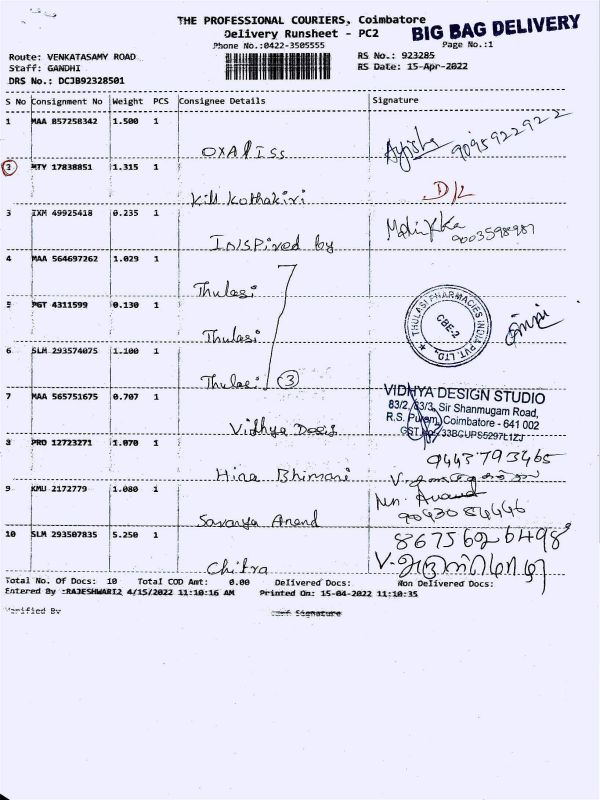 THE PROFESSIONAL COURIERS, Coimbatore
BIG BAG DELIVERY
Delivery Runsheet - PC2
Phone No.:0422-3505555
Page No.:1
Route: VENKATASAMY ROAD
RS No.: 923285
Staff: GANDHI
RS Date: 15-Apr-2022
DRS No.: DCJB92328501
S No Consignment No Weight PCS Consignee Details Signature
1 MAA 857258342 1.500 1
OXALISS Ayisha 9095922922
2 MTY 17838851 1.315 1
Kill Kothakiri D/L
3 IXM 49925418 0.235 1
INSPired by Mallikka 9003598987
4 MAA 564697262 1.029 1
Thulasi
5 PGT 4311599 0.130 1
Thulasi
THULASI PHARMACIES INDIA PVT. LTD.
CBE-2
6 SLM 293574075 1.100 1
Thulasi 3
7 MAA 565751675 0.707 1
VIDHYA DESIGN STUDIO
83/2, 83/3, Sir Shanmugam Road,
R.S. Puram, Coimbatore - 641 002
GST No: 33BCUPS5297L1ZJ
Vidhya Desig
8 PRO 12723271 1.070 1
Hina Bhimani 9443793465
9 KMU 2172779 1.080 1
Saranya Anand Anand
9043084446
10 SLM 293507835 5.250 1
Chitra 8675626498
Total No. Of Docs: 10 Total COD Amt: 0.00 Delivered Docs: Non Delivered Docs:
Entered By :RAJESHWARI2 4/15/2022 11:10:16 AM Printed On: 15-04-2022 11:10:35
Verified By Signature